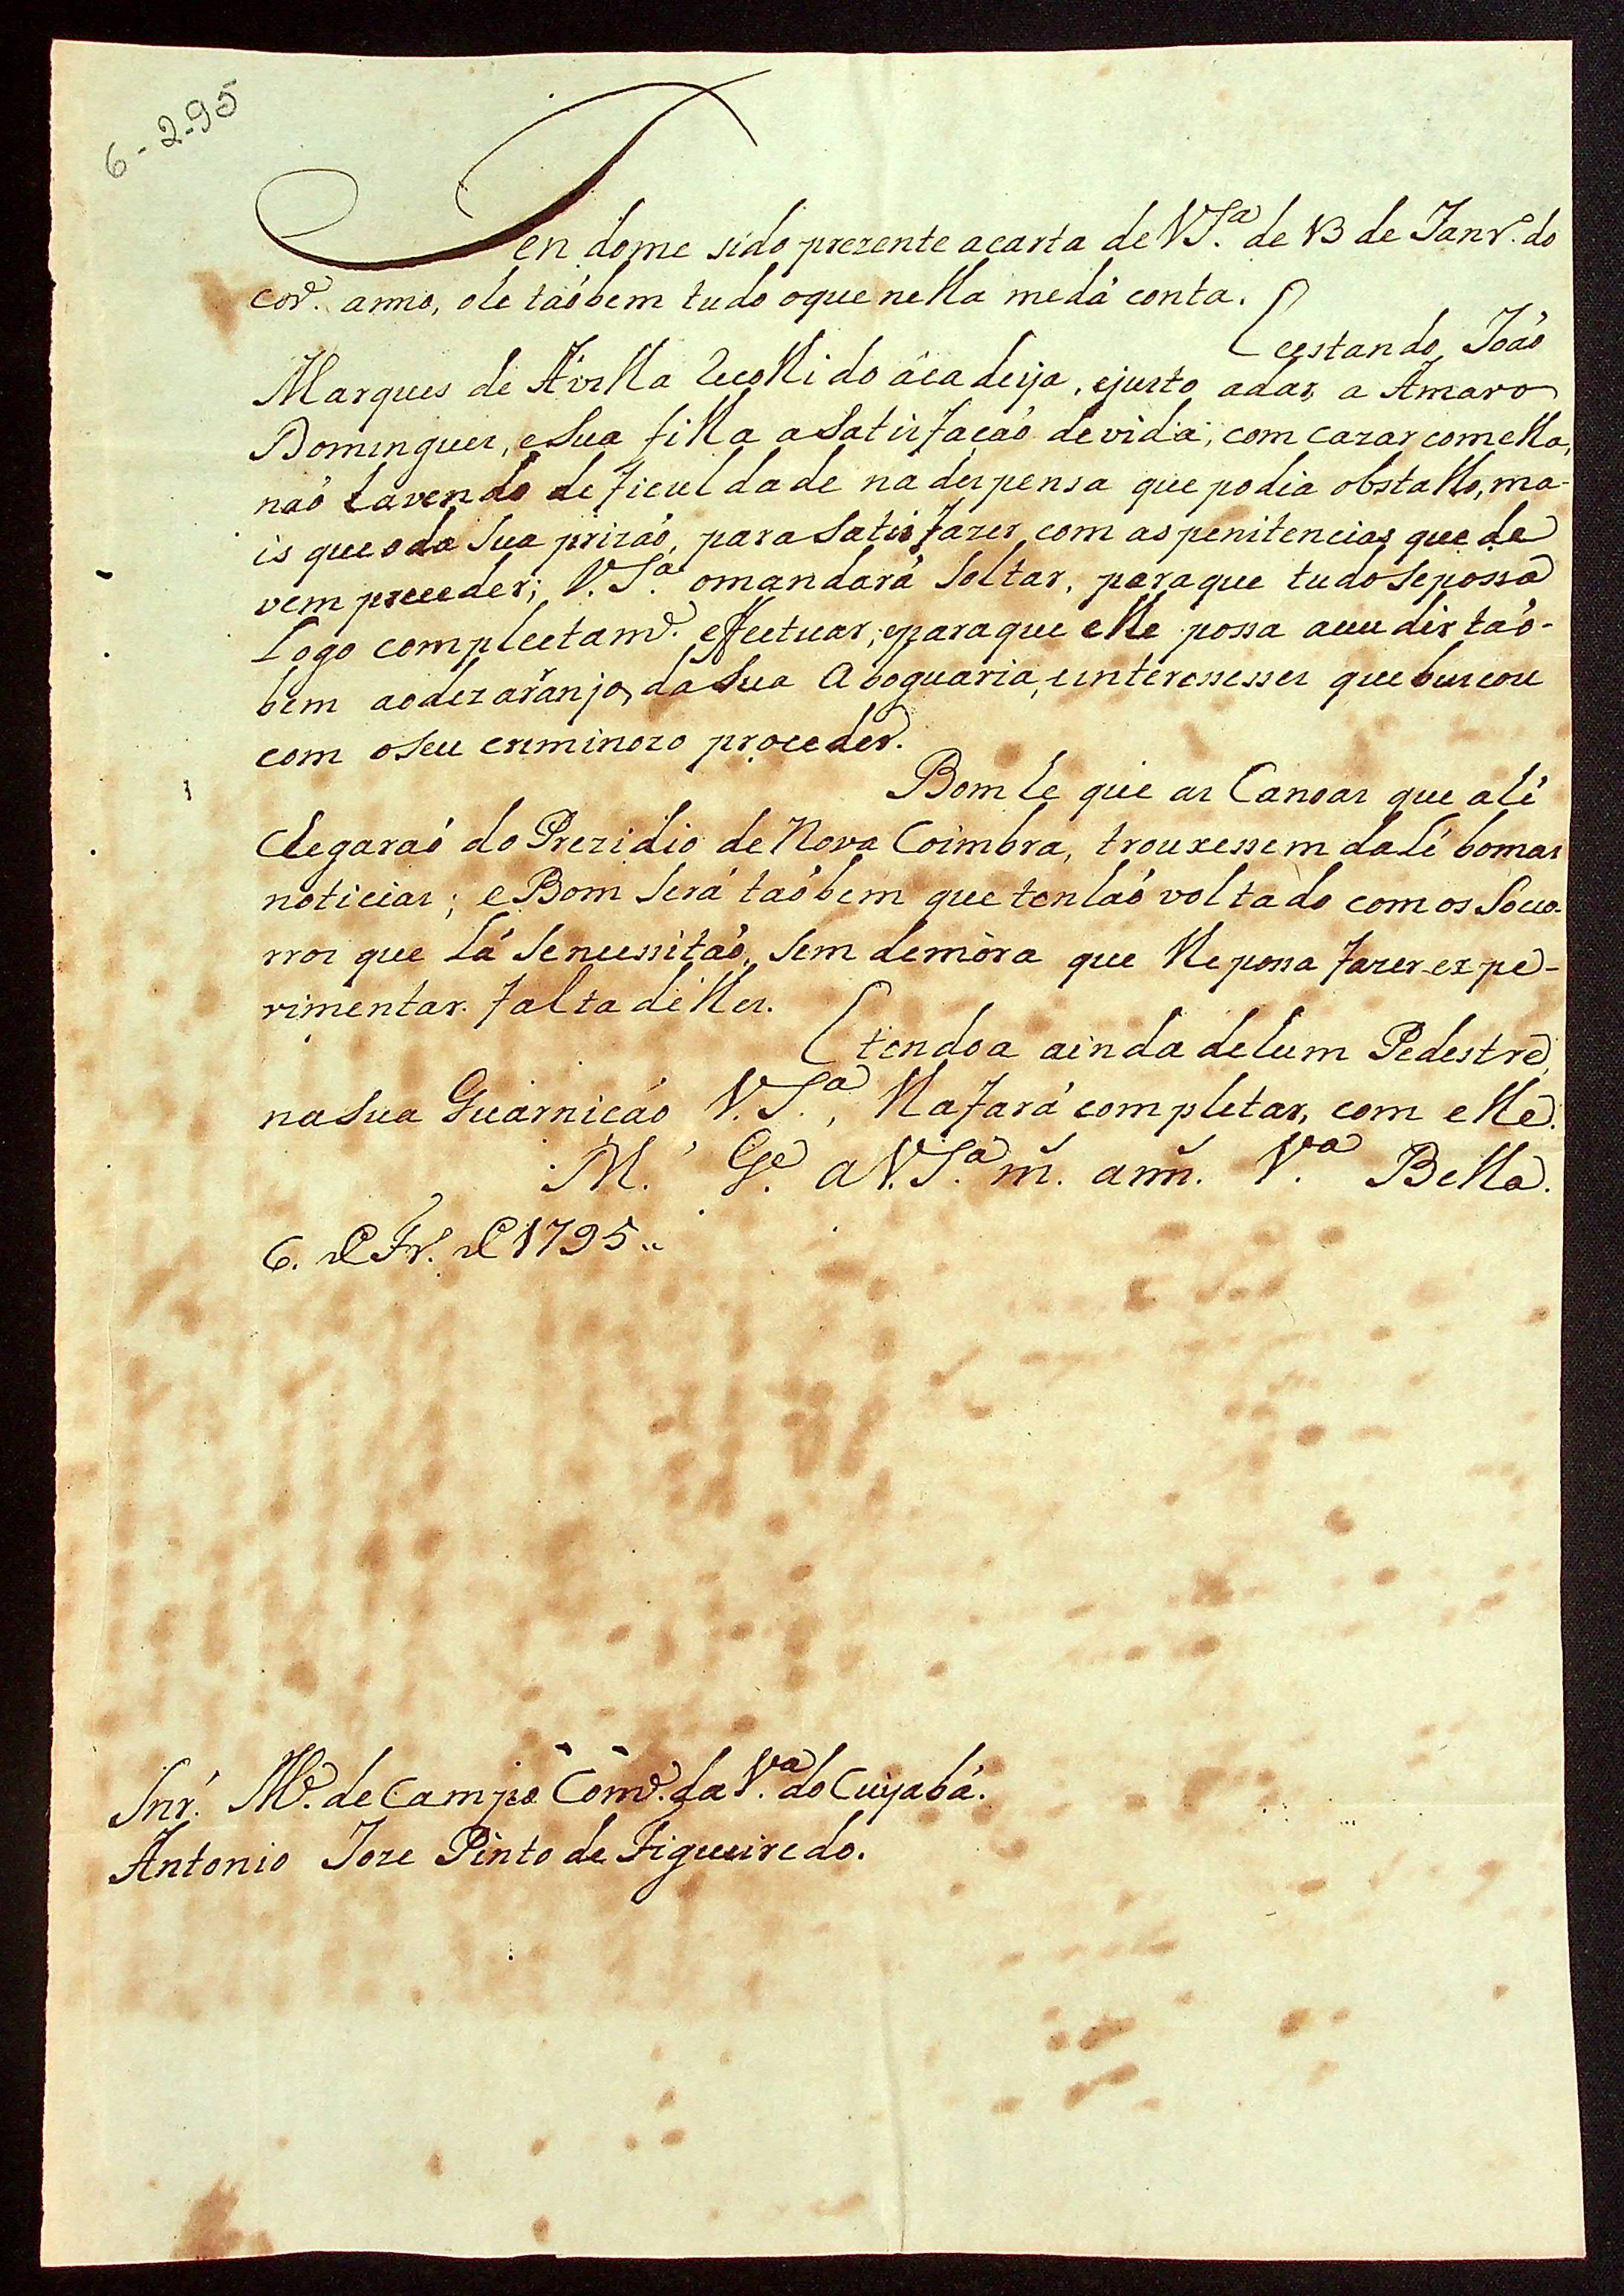 6-2-95
Tendome sido prezente acarta de V S.ª de 13 de Janr.º do
corᵉ. anno, ohe taóbem tudo oque nella medá conta.
Eestando Joáo
Marques de Avilla recolhido âcadeija, ejusto adar, a Amaro
Domingues, eSua filha aSatisfaçaó devida, com cazar comella,
naó havendo deficuldade na despensa que podia obstallo, ma-
is que o da Sua prizaó, para Satisfazer com as penitencias que de
vem preceder; V. S.ª omandará Soltar, paraque tudo Sepossa
Logo compleetamᵉ. effectuar; eparaque elle possa acudir taó-
bem aodezarranjo, da Sua Aboguaria, einteressesses que buscou
com oSeu criminozo proceder.
Bom he que as Canoas que ahé
chegaraó do Prezidio de Nova Coimbra, trouxessem dalé bomas
noticias; e Bom Será taóbem que tenhaó voltado com os Soco-
rros que Lá Senecessitaó, Sem demòra que lhe possa fazer expe-
rimentar falta delles.
Etendoa ainda dehum Pedestre,
naSua Guarnicáo V. S.ª, lhafará completar, com elle.
G.ᵉ a V. S.ª m.ˢ ann.ˢ V.ª Bella.
6. de Fr.º de 1795..
Snr. M.ᵉ de Campo Comᵉ. da V.ª do Cuyabá.
Antonio Joze Pinto de Figueiredo.